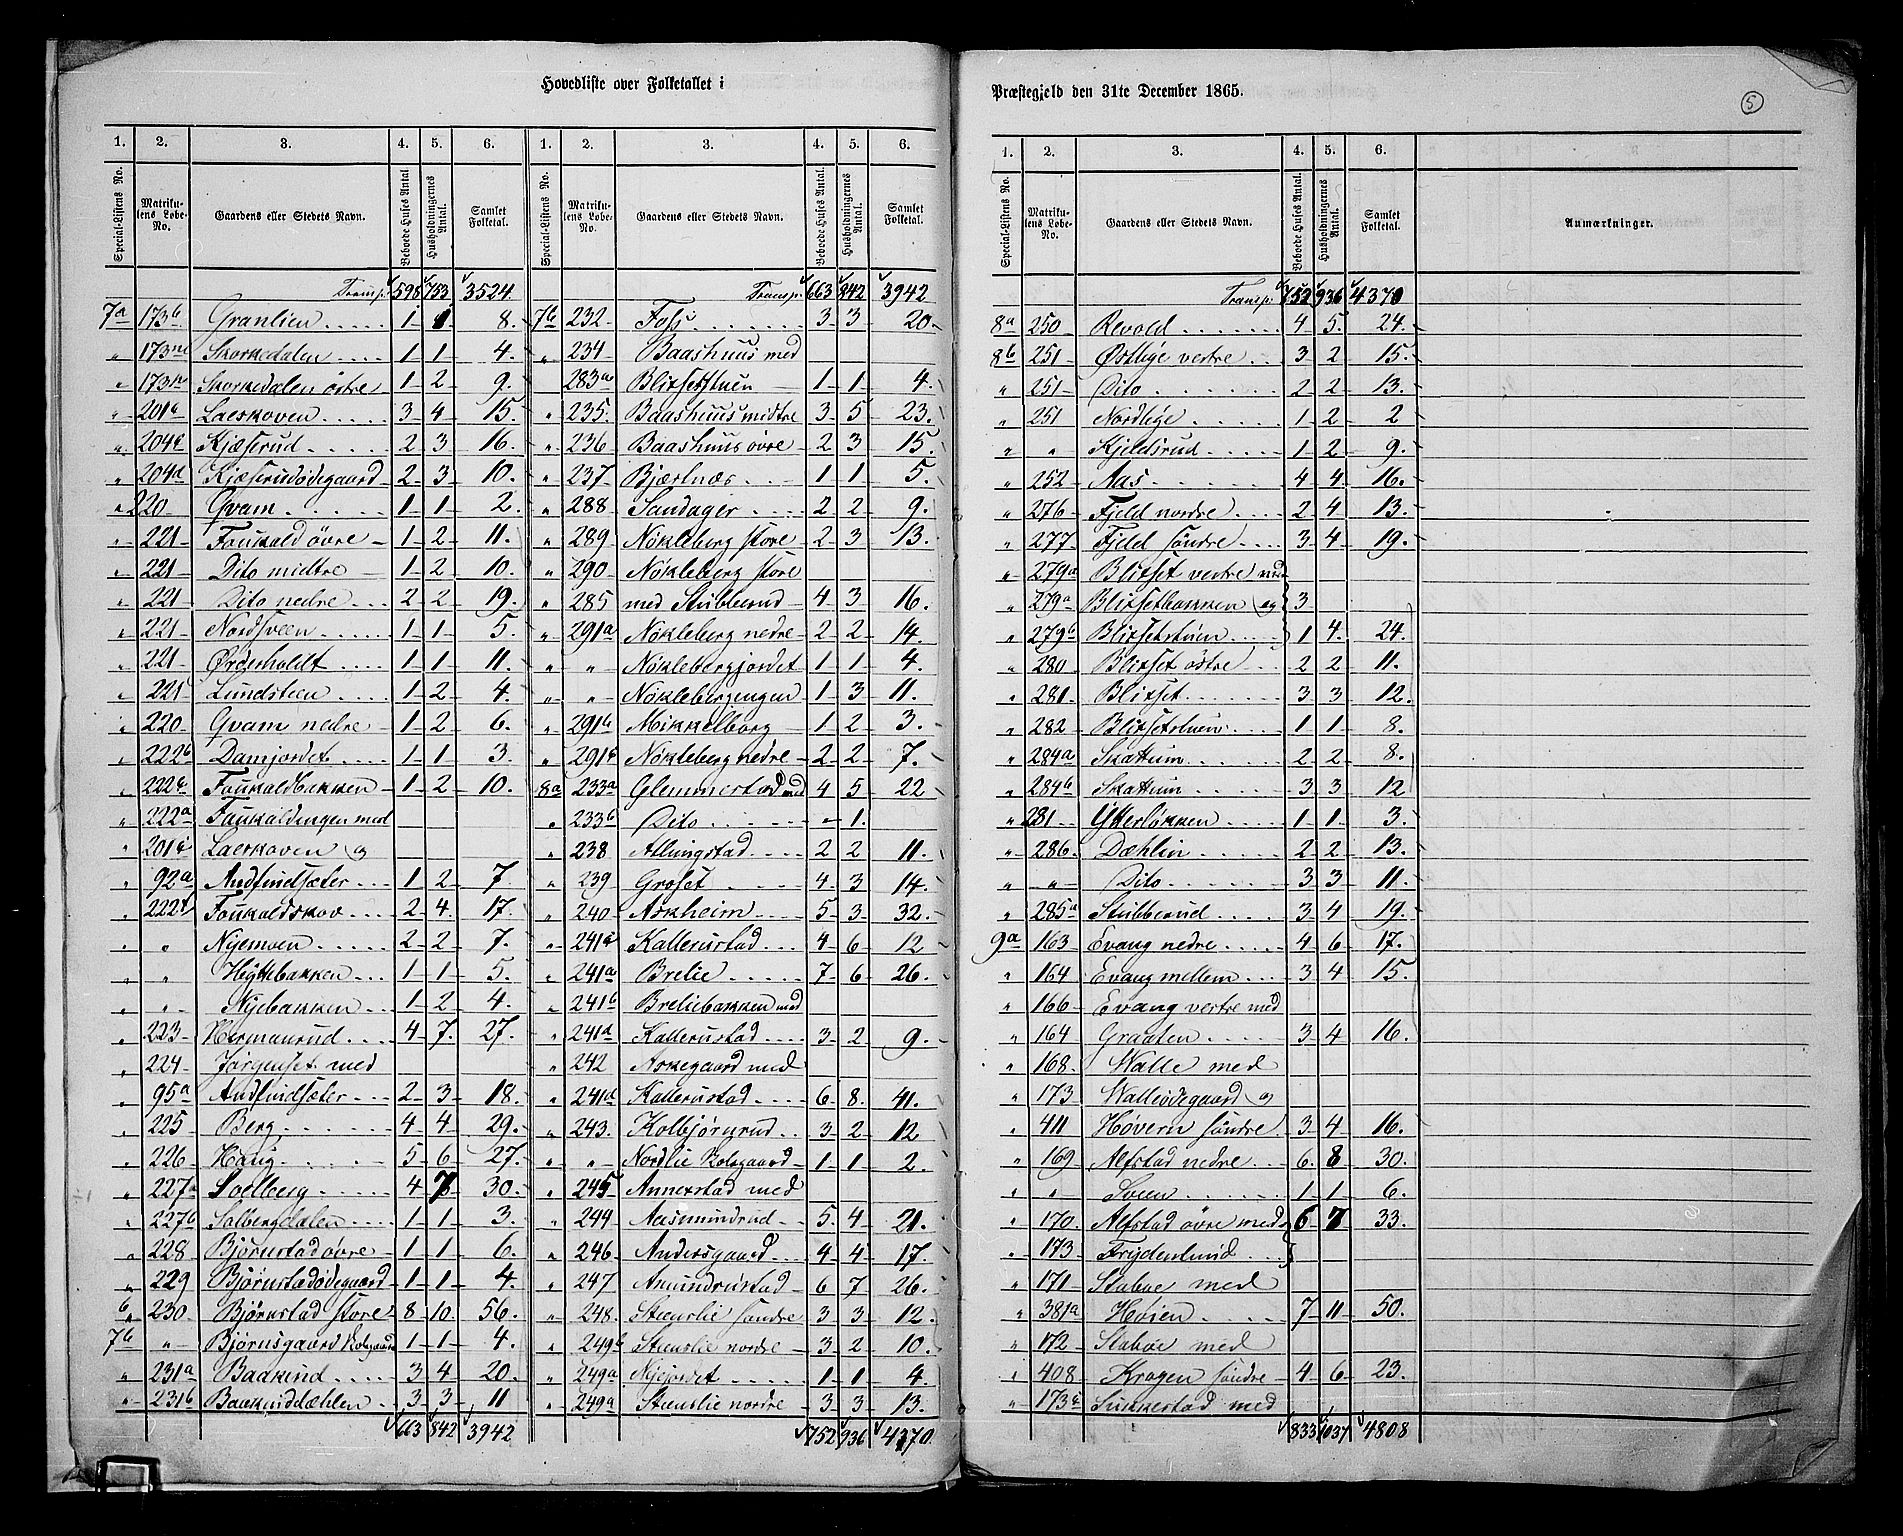 Hovedliste over Folketallet i
1. 2. 3. 4. 5. 6. 1. 2. 3. 4. 5. 6.
Special-Listens No. Matrikulens Løbe-No. Gaardens eller Stedets Navn. Beboede Huses Antal. Husholdningernes Antal. Samlet Folketal. Special-Listens No. Matrikulens Løbe-No. Gaardens eller Stedets Navn. Beboede Huses Antal. Husholdningernes Antal. Samlet Folketal.
Transp. 598 753 3524
7a 173b Granlien 1 1 8.
" 173m Skorkedalen 1 1 4.
" 173n Skorkedalen østre 1 2 9.
" 201c Laeskoven 3 4 15.
" 204c Kjæserud 2 3 16.
" 204d Kjæserudødegaard 2 3 10.
" 220 Qvam 1 1 2.
" 221 Foukald øvre 1 2 11.
" 221 Dito midtre 1 2 10.
" 221 Dito nedre 2 2 19.
" 221 Nordsveen 1 1 5.
" 221 Ørderholdt 1 1 11.
" 221 Lundsteen 1 2 4.
" 220 Qvam nedre 1 2 6.
" 222b Damjordet 1 1 3.
" 222c Foukaldbakken 1 2 10.
" 222a Foukaldengen med
" 201 Laeskoven og
" 92a Audfindsæter 1 2 7.
" 222 Foukaldskov 2 4 17.
" " Nyemoen 2 2 7.
" " Hÿttebakken 1 1 5.
" " Nyebakken 1 2 4.
" 223 Hermanrud 4 7 27.
" 224 Jørgenset med
" 95a Audfindsæter 2 3 18.
" 225 Berg 4 4 29.
" 226 Haug 5 6 27.
" 227a Soelberg 4 7 30.
" 227b Solbergdalen 1 1 3.
" 228 Bjørnstad øvre 1 1 6.
" 229 Bjørnstadødegaard 1 1 4.
" 230 Bjørnstad store 8 10 56.
7b " Bjørnsgaard Kolsgaard 1 1 4.
" 231a Baakind 3 4 20.
" 231b Baakinddæhlen 3 3 11
663 842 3942
Transp. 663 842 3942
7b 232 Foss 3 3 20
" 234 Baashuus med
283a Blixetstuen 1 1 4.
" 235 Baashuus midtre 3 5 23.
" 236 Baashuus øvre 2 3 15.
" 237 Bjærtnæs 1 1 5.
" 288 Sandager 2 2 9.
" 289 Nøkleberg store 2 3 13.
" 290 Nøkleberg store
" 285 med Stubberud 4 3 16.
" 291a Nøkleberg nedre 2 2 14.
" " Nøklebergjordet 1 1 4.
" " Nøklebergengen 1 3 11.
" 291b Mikkelborg 1 2 3.
" 291c Nøkleberg nedre 2 2 7.
8a 233a Glemmestad med 4 5 22
" 233b Dito 1.
" 238 Allungstad 2 2 11.
" 239 Groset 4 3 14.
" 240 Askheim 5 3 32.
" 241c Kallerustad 4 6 12
" 241a Brelie 7 6 26.
" 241b Breliebakken med
" 241d Kallerustad 3 2 9.
" 242 Askegaard med
" 241d Kallerustad 6 8 41.
" 243 Kolbjørnrud 3 2 12
" " Nordlie Kolsgaard 1 1 2.
" 245 Annexstad med
" 244 Aasmundrud 5 4 21.
" 246 Andersgaard 4 4 17.
" 247 Amundrustad 6 7 26.
" 248 Steenslie søndre 3 3 12.
" 249b Steenslie nordre 3 2 10.
" 249a Nyjordet 1 1 4.
" 249a Steenslie nordre 3 3 13.
752 936 4370.
Præstegjeld den 31te December 1865.
5
1. 2. 3. 4. 5. 6.
Special-Listens No. Matrikulens Løbe-No. Gaardens eller Stedets Navn. Beboede Huses Antal. Husholdningernes Antal. Samlet Folketal. Anmærkninger.
Transp. 752 936 4370
8a 250 Revold 4 5 24.
8b 251 Østlige vestre 3 2 15.
" 251 Dito 2 2 13.
" 251 Nordlige 1 2 2
" " Kjeldsrud 1 2 9.
" 252 Aas 4 4 16.
" 276 Fjeld nordre 2 4 13.
" 277 Fjeld søndre 3 4 19.
" 279a Blixet vestre med
" 279a Blixetbakken og 3
" 279b Blixetstuen 1 4 24.
" 280 Blixet østre 2 2 11.
" 281 Blixet 3 3 12.
" 282 Blixetstuen 1 1 8.
" 284a Skattum 2 2 8.
" 284b Skattum 3 3 12
" 281 Ytterløkken 1 1 3.
" 286 Dæhlin 2 2 13.
" " Dito 3 3 11.
" 285a Stubberud 3 4 19.
9a 163 Evang nedre 4 6 17.
" 164 Evang mellem 3 4 15.
" 166 Evang vestre med
" 164 Graaten 3 4 16.
" 168 Walle med
" 173 Walleødegaard og
" 411 Høvern søndre 3 4 16.
" 169 Alfstad nedre 6 8 30.
" " Sveen 1 1 6.
" 170 Alfstad øvre med 6 7 33.
" 173 Frydenlund
" 171 Staboe med
" 381a Høien 7 11 50.
" 172 Staboe med
" 408 Krogen søndre 4 6 23.
" 173c Sukkestad med
833 1037 4808